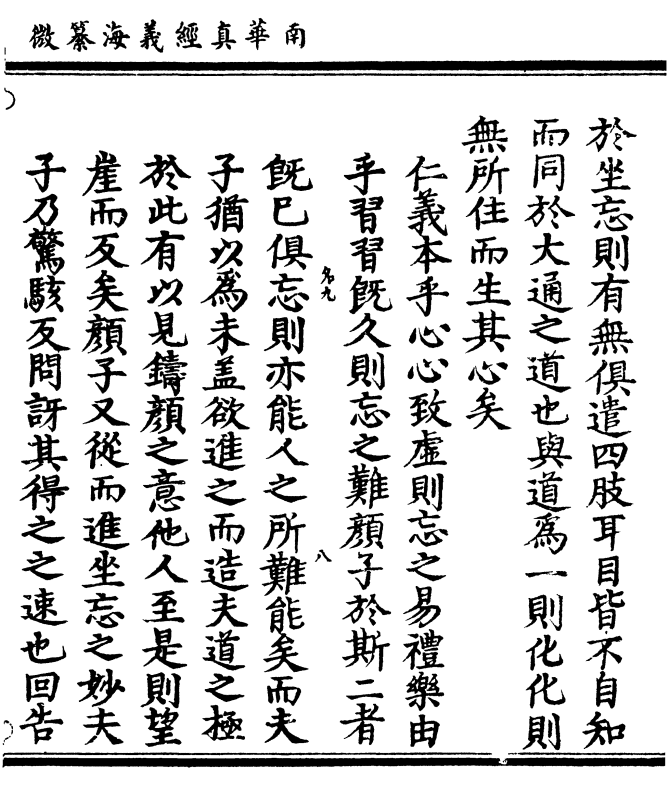 南華真經義海纂微
於坐忘則有無俱遣四肢耳目皆不自知
而同於大通之道也與道爲一則化化則
無所住而生其心矣
仁義本乎心心致虛則忘之易禮樂由
乎習習旣久則忘之難顏子於斯二者
旣巳俱忘則亦能人之所難能矣而夫
子猶以爲未盖欲進之而造夫道之極
於此有以見鑄顏之意他人至是則望
崖而反矣顏子又從而進坐忘之妙夫
子乃驚駭反問訝其得之之速也回告
八